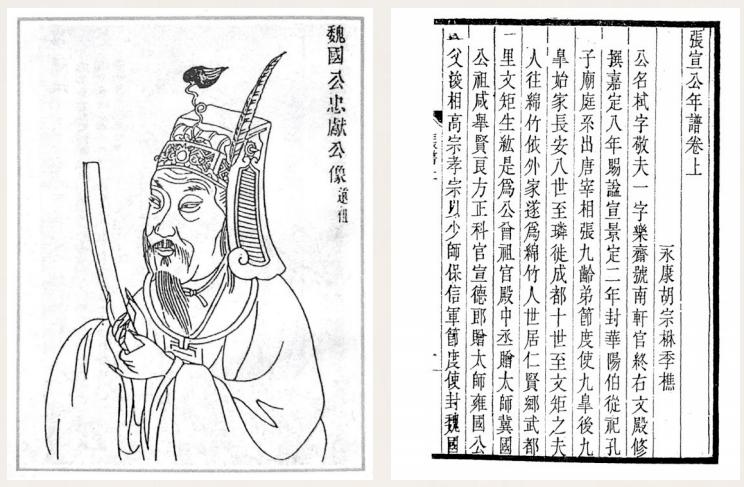 魏國公忠獻公像 遠祖
張宣公年譜卷上
永康胡宗楙季樵
公名栻字敬夫一字樂齋號南軒官終右文殿修
撰嘉定八年賜諡宣景定二年封華陽伯從祀孔
子廟庭系出唐宰相張九齡弟節度使九皋後九
皋始家長安八世至璘徙成都十世至文矩之夫
人往綿竹依外家遂爲綿竹人世居仁賢鄉武都
里文矩生紘是爲公曾祖官殿中丞贈太師冀國
公祖咸舉賢良方正科官宣德郎贈太師雍國公
父浚相高宗孝宗以少師保信軍節度使封魏國